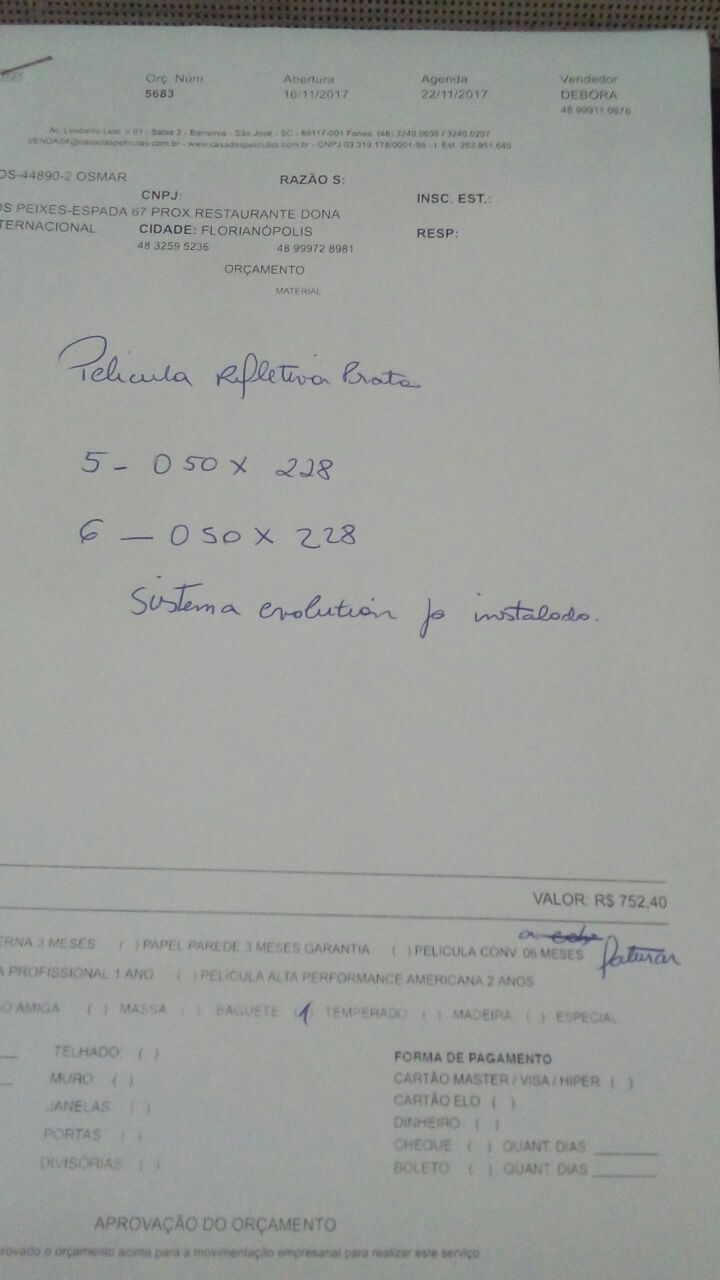 Orç. Num Abertura Agenda Vendedor
5683 16/11/2017 22/11/2017 DEBORA
48 99911 0676
Av. Leoberto Leal, n 01 - Salas 2 - Barreiros - São José - SC - 88117-001 Fones. (48) 3240.0606 / 3240.0207
VENDAS4@casadaspeliculas.com.br - www.casadaspeliculas.com.br - CNPJ 03.319.178/0001-96 - I. Est. 253.951.640
OS-44890-2 OSMAR RAZÃO S:
CNPJ: INSC. EST.:
OS PEIXES-ESPADA 67 PROX RESTAURANTE DONA
TERNACIONAL CIDADE: FLORIANÓPOLIS RESP:
48 3259 5236 48 99972 8981
ORÇAMENTO
MATERIAL
Pelicula Refletiva Prata
5 - 0 50 X 228
6 — 0 50 X 228
Sistema evolution ja instalado.
VALOR: R$ 752,40
a faturar
ERNA 3 MESES ( ) PAPEL PAREDE 3 MESES GARANTIA ( ) PELICULA CONV 06 MESES
A PROFISSIONAL 1 ANO ( ) PELÍCULA ALTA PERFORMANCE AMERICANA 2 ANOS
O AMIGA ( ) MASSA ( ) BAGUETE (1) TEMPERADO ( ) MADEIRA ( ) ESPECIAL
TELHADO: ( )
MURO: ( )
JANELAS: ( )
PORTAS ( )
DIVISÓRIAS: ( )
FORMA DE PAGAMENTO
CARTÃO MASTER / VISA / HIPER ( )
CARTÃO ELO ( )
DINHEIRO ( )
CHEQUE ( ) QUANT DIAS
BOLETO ( ) QUANT DIAS
APROVAÇÃO DO ORÇAMENTO
rovado o orçamento acima para a movimentação empresarial para realizar este serviço